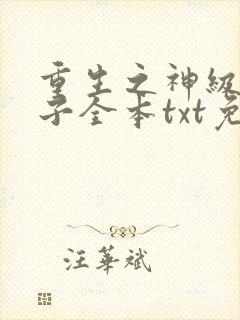 重生之神级
子全本txt免
汪华斌